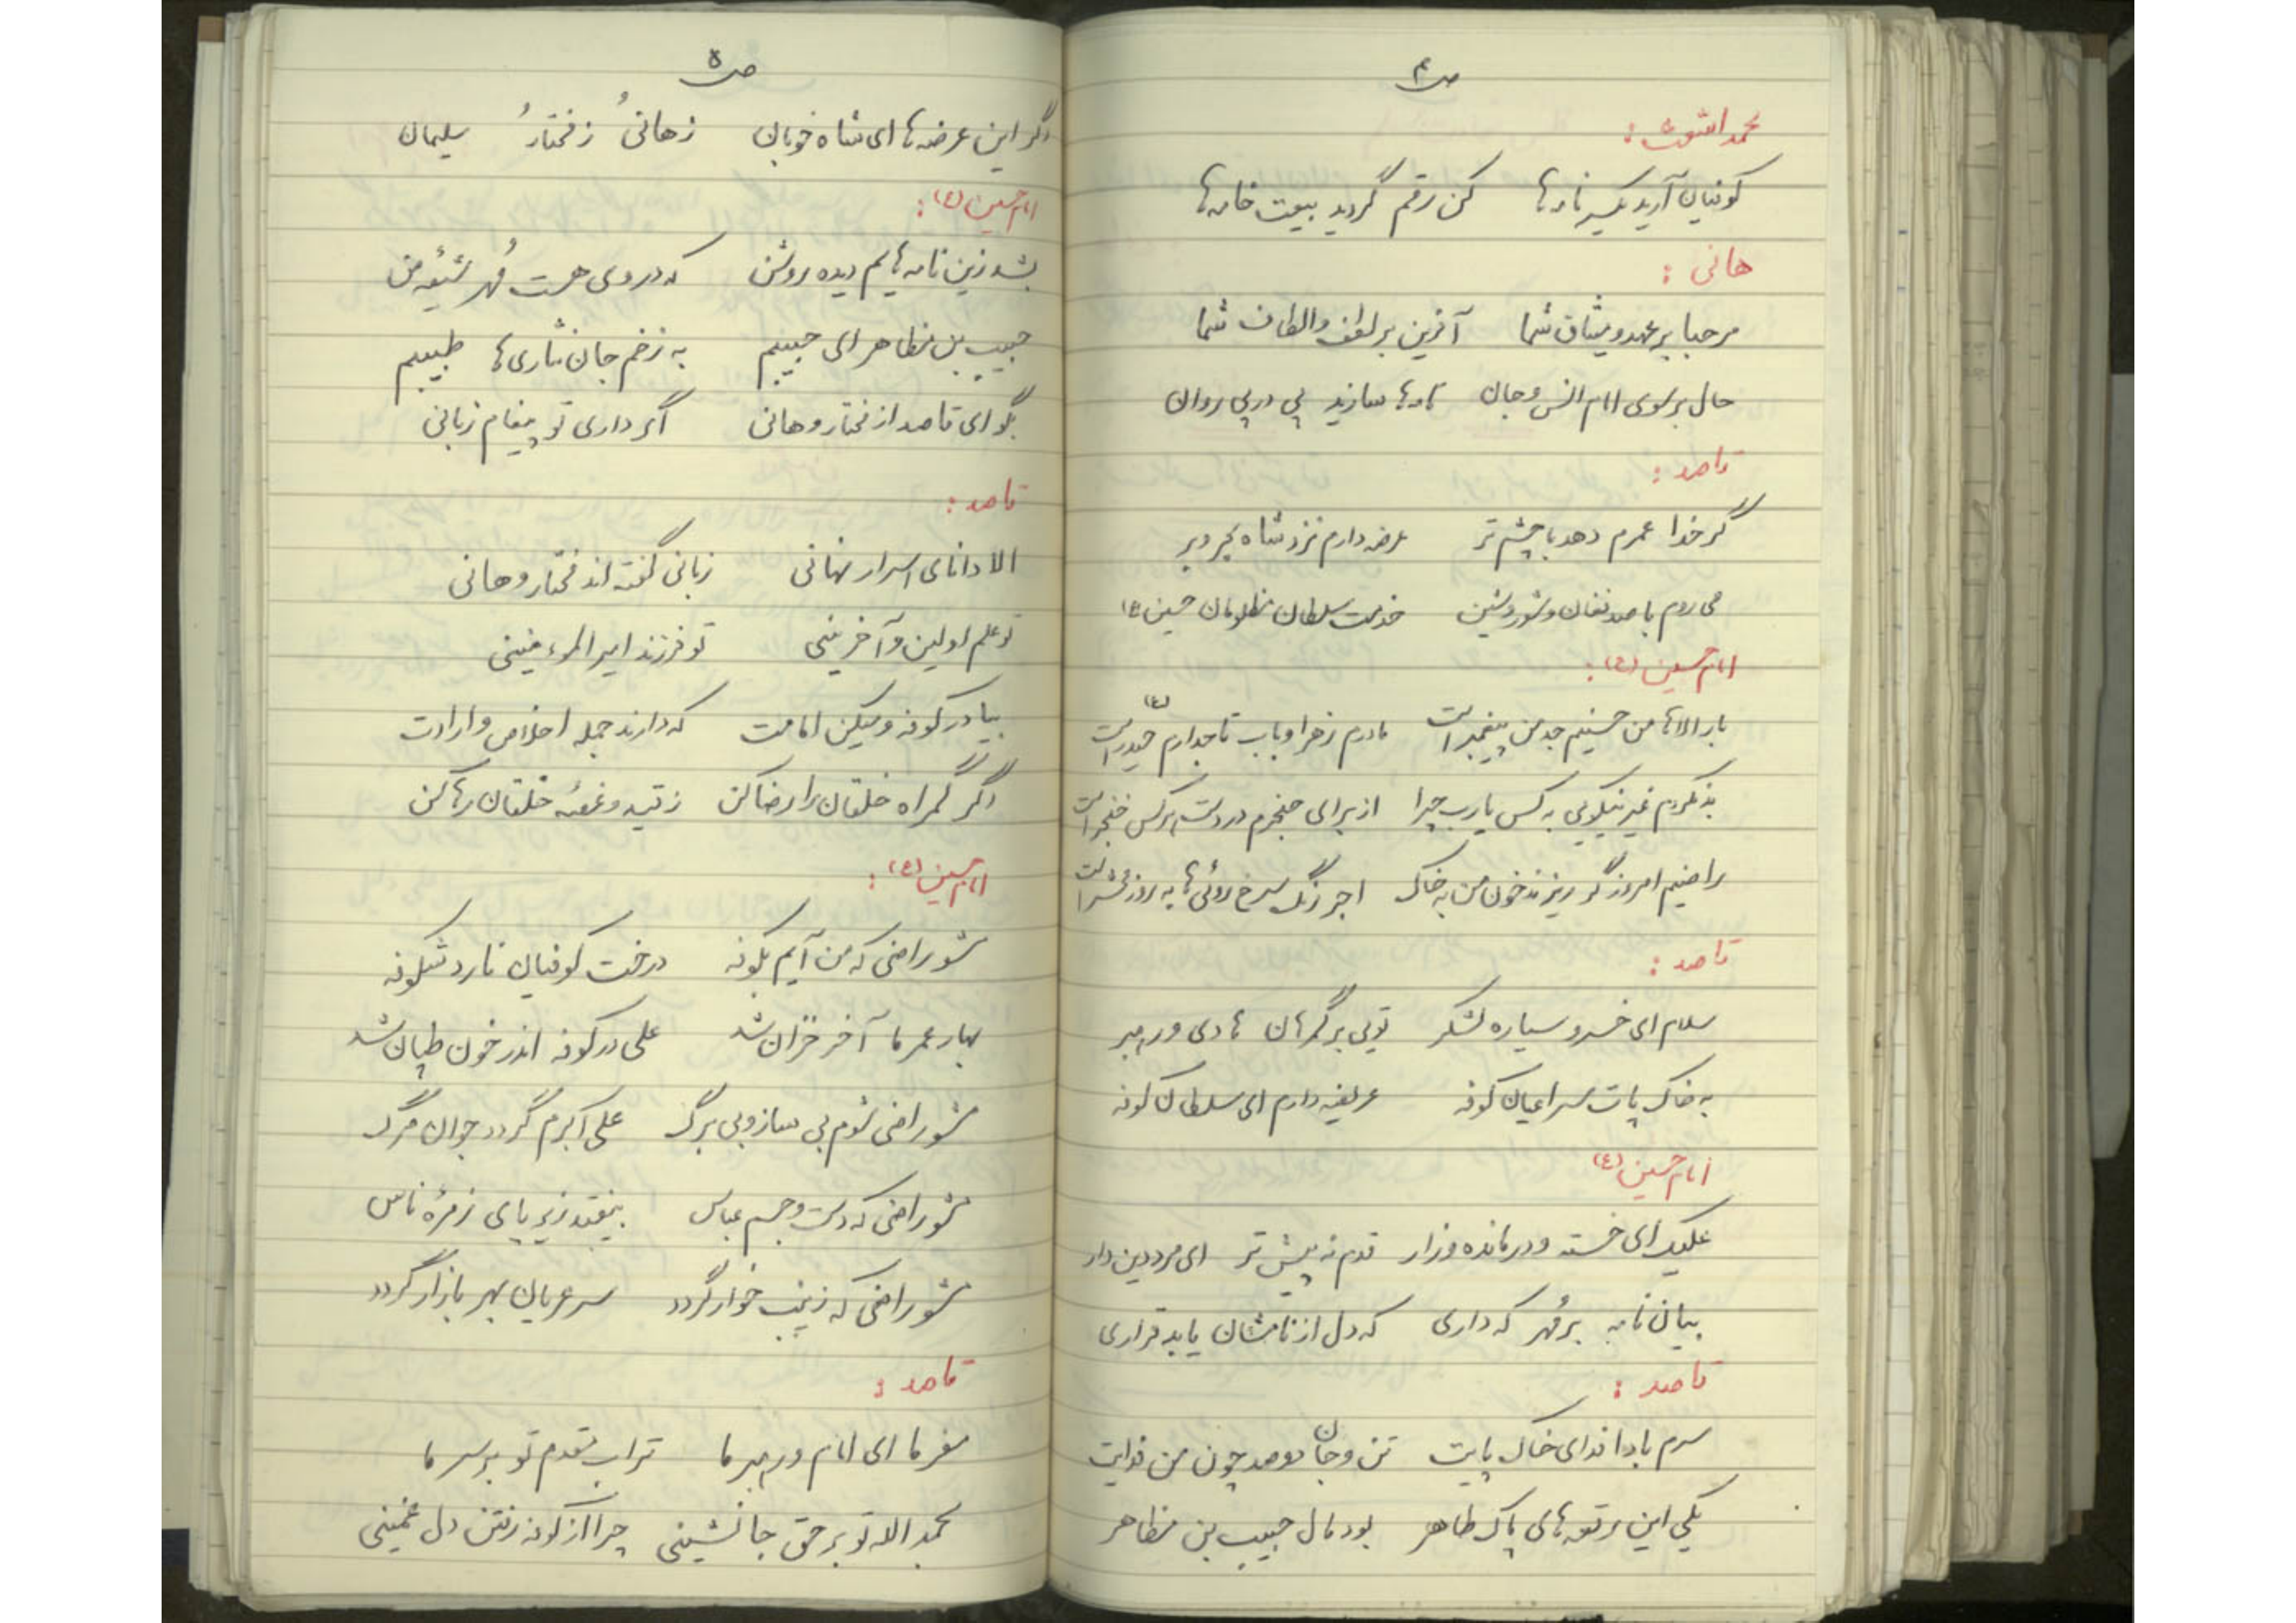 ص۴
محمد اشعث :
کوفیان آرید یکسر نامه‌ها کن رقم گردید بیعت خامه‌ها
هانی :
مرحبا بر عهد و میثاق شما آفرین بر لطف و الطاف شما
حال بر سوی امام انس و جان نامه‌ها سازید پی در پی روان
قاصد :
گر خدا عمرم دهد با چشم تر عرضه دارم نزد شاه بحر و بر
می روم با صد فغان و شور و شین خدمت سلطان مظلومان حسین (ع)
امام حسین (ع) :
بار الاها من حسینم جد من پیغمبر است مادرم زهرا و باب تاجدارم حیدر (ع) است
بد نکردم غیر نیکویی به کس یارب چرا از برای حنجرم در دست هر کس خنجر است
راضیم امروز گر ریزند خون من به خاک اجر رنگ سرخ روئی‌ها به روز محشر است
قاصد :
سلام ای خسرو سیاره لشکر تویی بر گمرهان هادی و رهبر
به خاک پات سر اعیان کوفه عریضه دارم ای سلطان کوفه
امام حسین (ع)
علیک ای خسته و درمانده و زار قدم نه پیش تر ای مرد دین دار
بیان نامه بر مُهر که داری که دل از نامشان یابد قراری
قاصد :
سرم بادا فدای خاک پایت تن و جان دوصد چون من فدایت
یکی این رقعه های پاک طاهر بود مال حبیب بن مظاهر
ص۵
دگر این عرضه‌ها ای شاه خوبان ز هانیُ ز مختارُ سلیمان
امام حسین (ع) :
بشد زین نامه‌هایم دیده روشن که در وی هست مُهر شیعهٔ من
حبیب بن مظاهر ای حبیبم به زخم جان نثاری‌ها طبیبم
بگو ای قاصد از مختار و هانی اگر داری تو پیغام زبانی
قاصد :
الا دانای اسرار نهانی زبانی گفته اند مختار و هانی
تو علم اولین و آخرینی تو فرزند امیر المؤمنینی
بیا در کوفه و میکن امامت که دارند جمله اخلاص و ارادت
دگر گمراه خلقان را رضا کن ز تیه و غصهٔ خلقان رها کن
امام حسین (ع) :
مشو راضی که من آیم بکوفه درخت کوفیان نارد شکوفه
بهار عمر ما آخر خزان شد علی در کوفه اندر خون طپان شد
مشو راضی شوم بی ساز و بی برگ علی اکبرم گردد جوان مرگ
مشو راضی که دست و جسم عباس بیفتد زیر پای زمرهٔ ناس
مشو راضی که زینب خوار گردد سر عریان بهر بازار گردد
قاصد :
مفرما ای امام و رهبر ما تراب مقدم تو بر سر ما
بحمد الله تو بر حق جانشینی چرا از کوفه رفتن دل غمینی